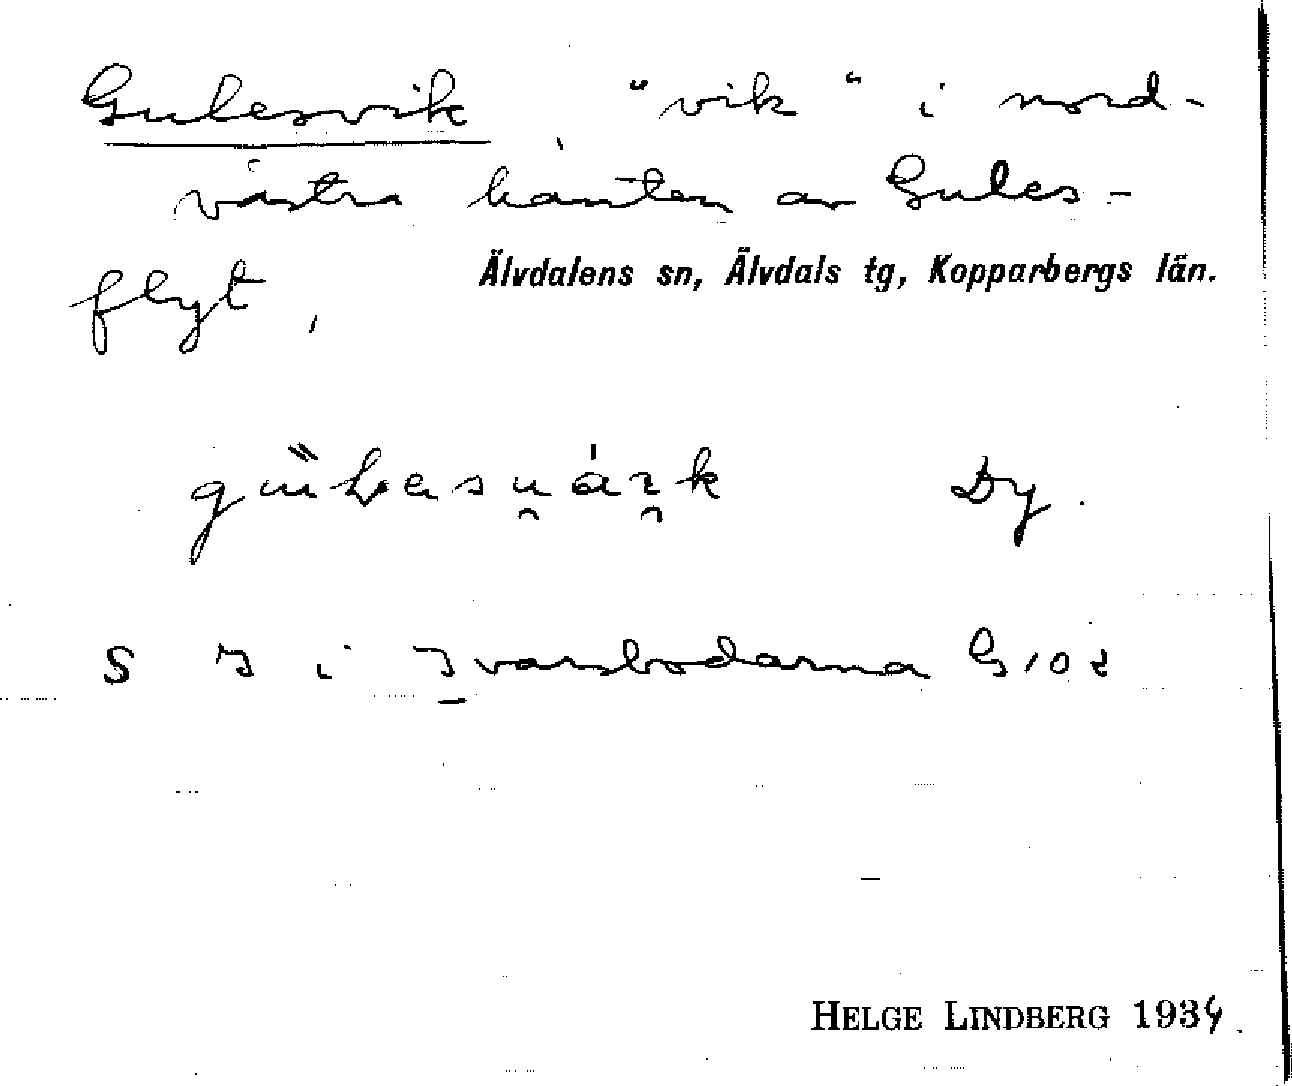 Gulesvik, "vik" i nord-
västra kanten av Gules-
flyt,
Älvdalens sn, Älvdals tg, Kopparbergs län.
Dy.
S J i Ivarsbodarna G 102
HELGE LINDBERG 1934.